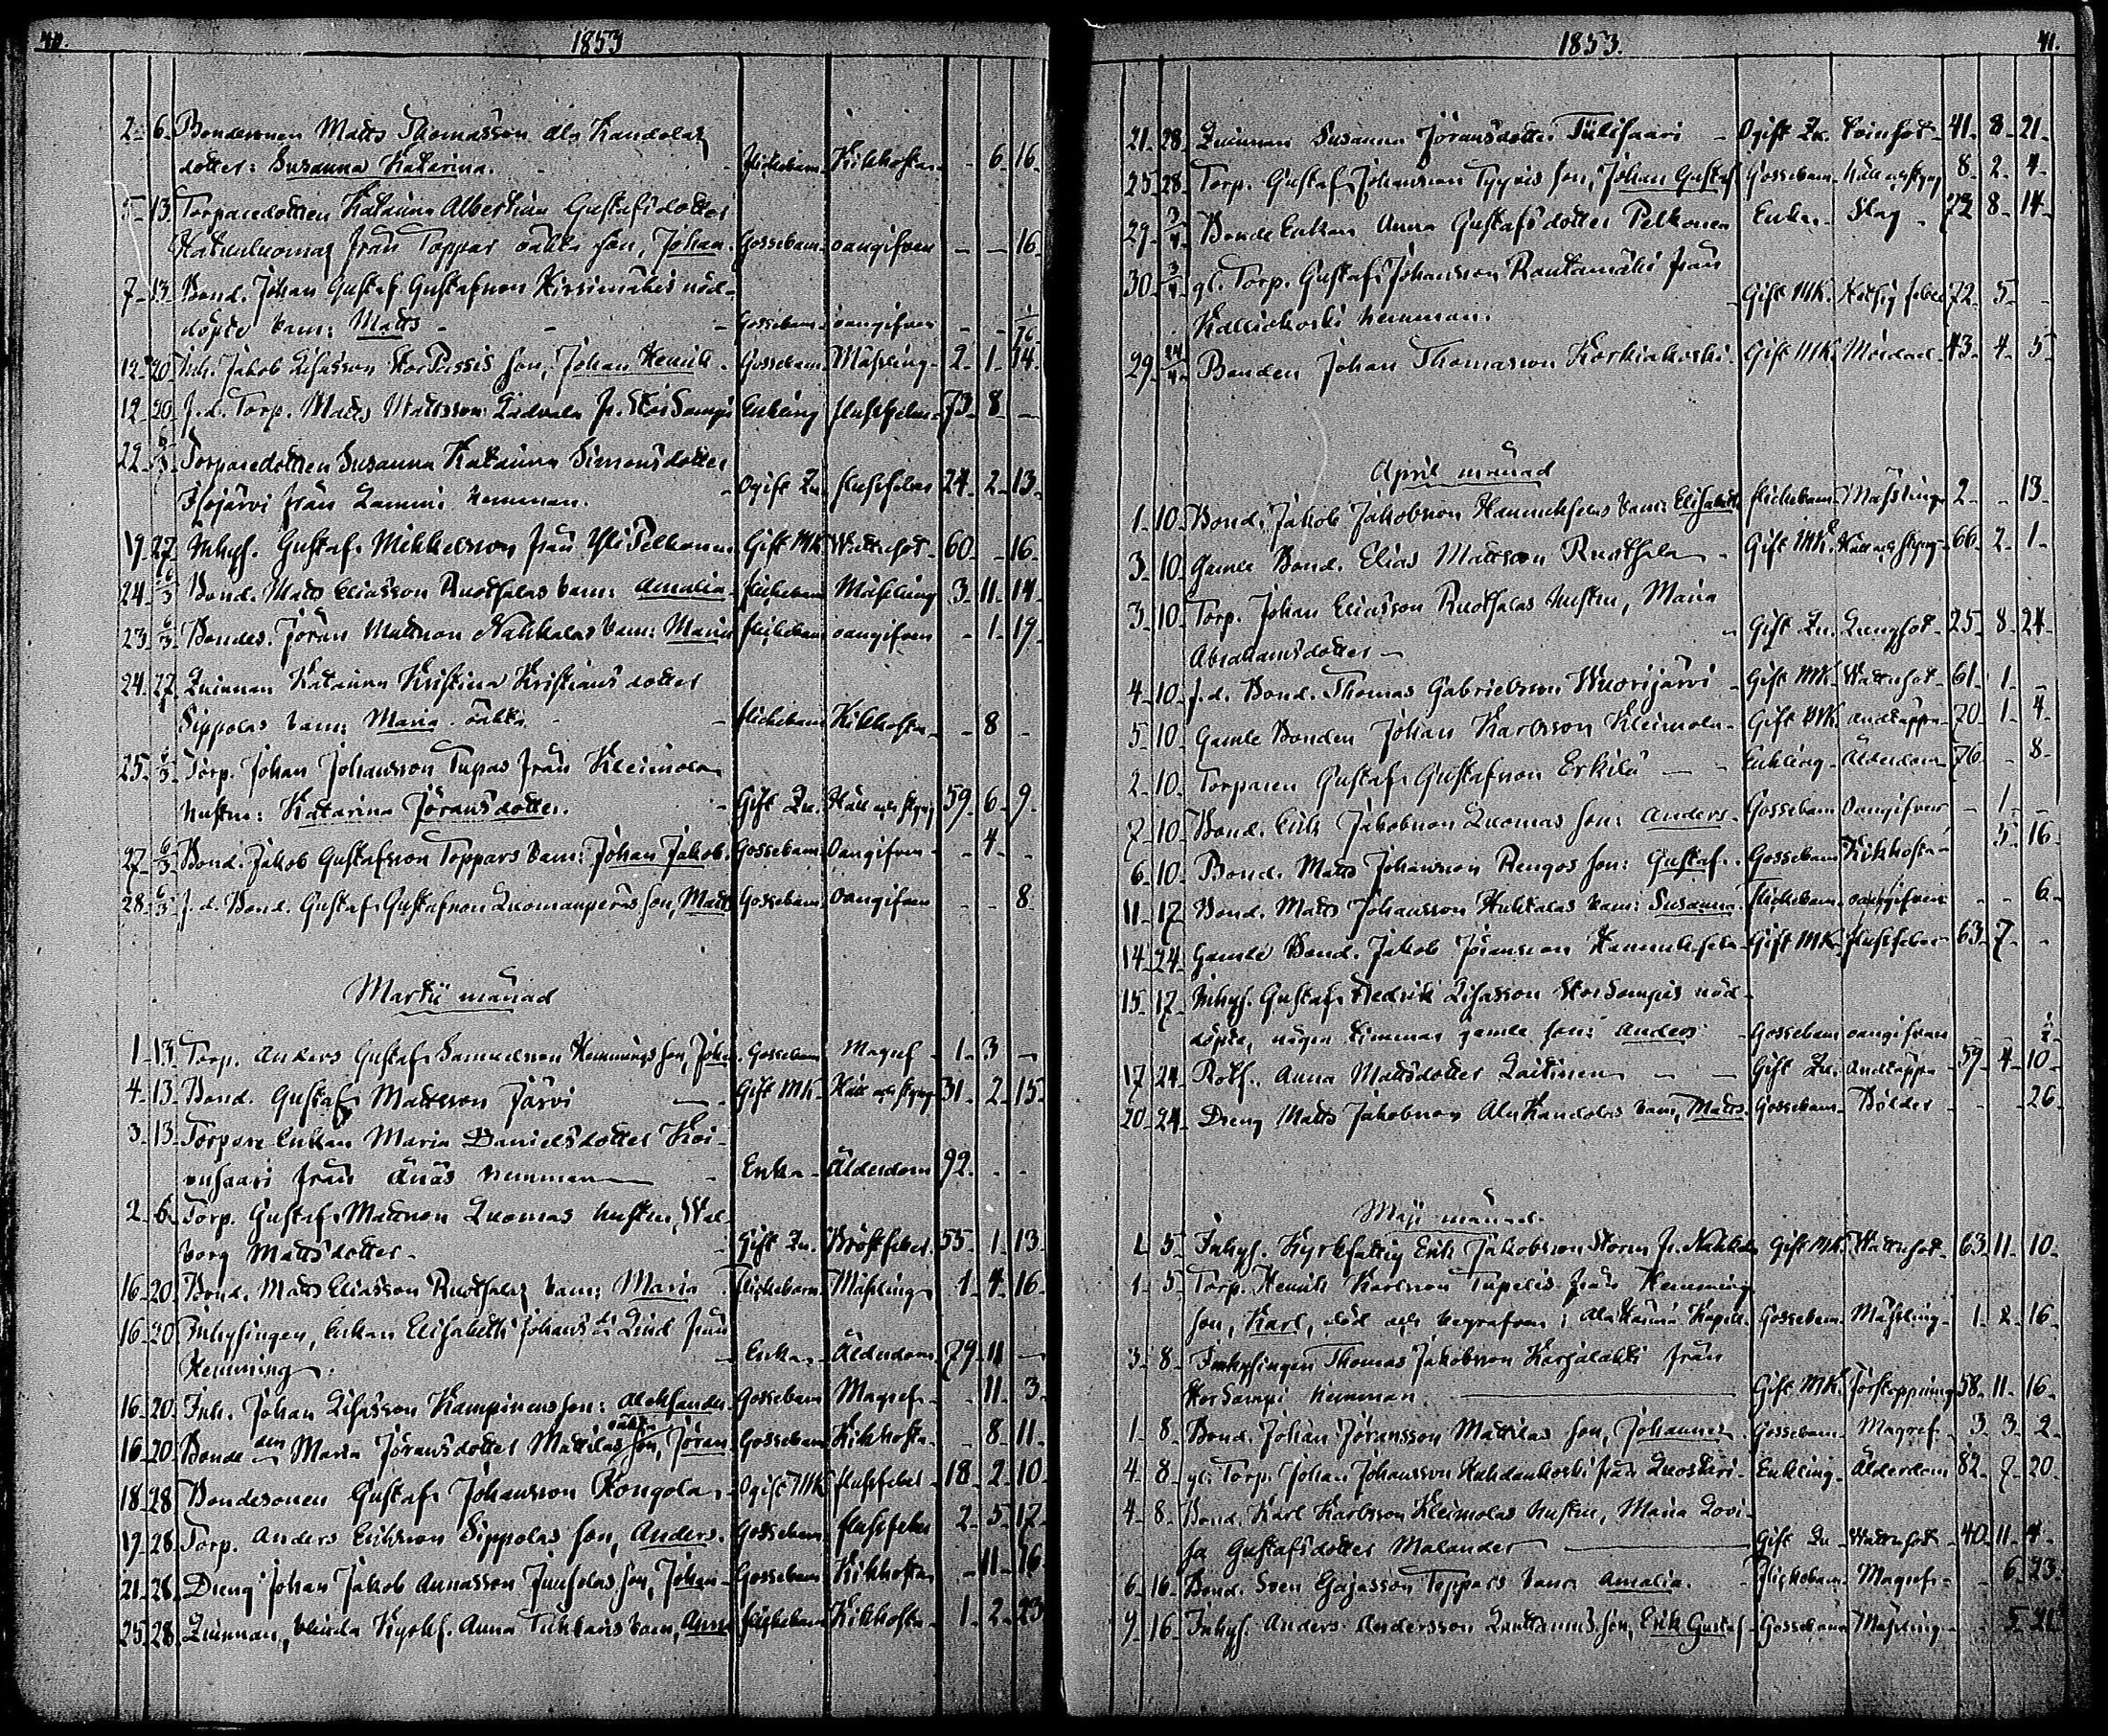 40. 1853
2. 6. Bondesonen Matts Thomasson Ala Kandolas
dotter: Susanna Katarina. Flickebarn Kikhosta - 6 16
5. 13. Torparedottren Katarina Albertina Gustafsdotter
från Toppar oäkta son, Johan. Gossebarn oangifven - - 16
7. 13. Bond. Johan Gustaf Gustafsson nöd-
döpte barn: Matts - Gossebarn oangifven
12. 20. Inh. Jakob son, Johan Henrik. Gossebarn Mässling 2. 1. 14.
12. 20. f.d. Torp. Matts Mattsson fr. Stor Sampu Enkling 73 8 -
22. 6/3 Torparedottren Susanna Katarina Simonsdotter
Isojärvi från Lammi hemman. Ogift Qu. 24. 2. 13.
19. 27. Inhys. Gustaf Mikkelsson från Yli Pelkonen Gift MK Wattusot 60 - 16.
24. 6/3 Bond. Matts Eliasson Ruotsalas barn: Amalia. flickebarn Mässling 3. 11. 14.
23. 6/3 Bondes. Jöran Mattsson Nahkalas barn: Maria flickebarn oangifven - 1. 19.
24. 27. Quinnan Katarina Kristina Kristiansdotter
Sippolas barn: Maria oäkta flickebarn Kikhosta - 8 -
25. 6/3 Torp. Johan Johansson Tupas från Kleimola
hustru: Katarina Jöransdotter. Gift Qu. Håll och styng 59 6 9.
27. 6/3 Bond. Jakob Gustafsson Toppars barn: Johan Jakob. Gossebarn Oangifven - 4 -
28. 6/3 f.d. Bond. Gustaf Gustafsson son, Matts Gossebarn oangifven - - 8
Martii månad
1. 13. Torp. Anders Gustaf Samuelsson Hemmings son, Johan. Gossebarn Magref 1. 3 -
4. 13. Bond. Gustaf Mattsson Järvi Gift MK Håll och styng 31. 2. 15.
3. 13. Torpare Enkan Maria Danielsdotter Koi-
från Änäs hemman Enka Ålderdom 92. - -
2. 6. Torp. Gustaf Mattsson Luomas hustru, Wal-
borg Mattsdotter. Gift Qu. Bröstfeber 55. 1. 13.
16. 20. Bond. Matts Eliasson Ruotsalas barn: Maria Flickebarn Mässling 1. 4. 16.
16. 20. Inhysingen, Enkan Elisabeth Johansdr Lind från
Hemming. Enka Ålderdom 79 11 -
16. 20. Inh. Johan son: Aleksander. Gossebarn Magref - 11. 3.
16. 20. Bonde den Maria Jöransdotter Mattilas oäkta son, Jöran. Gossebarn Kikhosta - 8. 11.
18. 28. Bondesonen Gustaf Johansson Kongola. Ogift MK 18. 2. 10.
19. 28. Torp. Anders Eriksson Sippolas son, Anders. Gossebarn 2. 5. 12.
21. 28. Dreng Johan Jakob son, Johan Gossebarn Kikhosta - 11. 16.
25. 28. Quinnan, blinda Anna barn, Anna flickebarn Kikhosta 1. 2. 23
1853. 41.
21. 28. Quinnan Susanna Jöransdotter Tulisaari Ogift Qu. 41. 8. 21.
25. 28. Torp. Gustaf Johansson son, Johan Gustaf Gossebarn Håll och styng 8. 2. 4.
29. 3/4 Bonde Enkan Anna Gustafsdotter Pelkonen Enka Slag 72 8. 14.
30. 3/4 gl. Torp. Gustaf Johansson Rautamäki från
hemman. Gift MK. 72. 5. -
29. 24/4 Bonden Johan Thomasson Korkiakoski Gift MK. Mördad 43. 4. 5.
April månad
1. 10. Bond. Jakob Jakobsson Hannukselas barn: Elisabeth flickebarn Mässling 2 - 13.
3. 10. Gamle Bond. Elias Mattsson Ruotsala Gift MK. Håll och styng 66. 2. 1.
3. 10. Torp. Johan Eliasson Ruotsalas hustru, Maria
Abrahamsdotter Gift Qu. Lungsot 25. 8. 24.
4. 10. f.d. Bond. Thomas Gabrielsson Wuorijärvi Gift MK. Wattusot 61. 1. -
5. 10. Gamle Bonden Johan Karlsson Kleimola Gift MK. Andtäppa 70. 1. 4.
2. 10. Torparen Gustaf Gustafsson Erkilä Enkling Ålderdom 76. - 8.
7. 10. Bond. Erik Jakobsson Luomas son: Anders. Gossebarn Oangifven - 1. -
6. 10. Bond. Matts Johansson Rengos son: Gustaf. Gossebarn Kikhosta 5. 16.
11. 17. Bond. Matts Johansson Huhtalas barn: Susanna. Flickebarn oangifven - - 6.
14. 24. Gamle Bond. Jakob Jöransson Hannuksela Gift MK. 63 7. -
15. 17. Inhys. Gustaf Fredrik Stor Sampus nöd-
döpte, några timmar gamla son: Anders Gossebarn oangifven
17. 24. Rotf. Anna Mattsdotter Laitinen Gift Qu. Andtäppa 59. 4. 10.
20. 24. Dreng Matts Jakobsson Ala Kandolas barn, Matts. Gossebarn Bölder - - 26.
Maji månad.
1. 5. Inhys. Kyrkfattig Erik Jakobsson Storm fr. Nahkala Gift MK. Wattusot 63. 11. 10.
1. 5. Torp. Henrik Karlsson från Hemming
son, Karl, död och begrafven i Alahärmä Kapell. Gossebarn Mässling 1. 2. 16.
3. 8. Inhysingen Thomas Jakobsson Karjalahti från
Stor Sampu hemman. Gift MK. Förstoppning 58. 11. 16.
1. 8. Bond. Johan Jöransson Mattilas son, Johannes. Gossebarn Magref 3. 3. 2.
4. 8. gl. Torp. Johan Johansson från Enkling Ålderdom 82. 7. 20.
4. 8. Bond. Karl Karlsson Kleimolas hustru, Maria Lovi-
sa Gustafsdotter Malander Gift Qu Wattusot 40. 11. 4.
6. 16. Bond. Sven Toppars barn Amalia. Flickebarn Magref - 6. 23.
9. 16. Inhys. Anders Andersson son, Erik Gustaf Gossebarn Mässling - 5. 21.